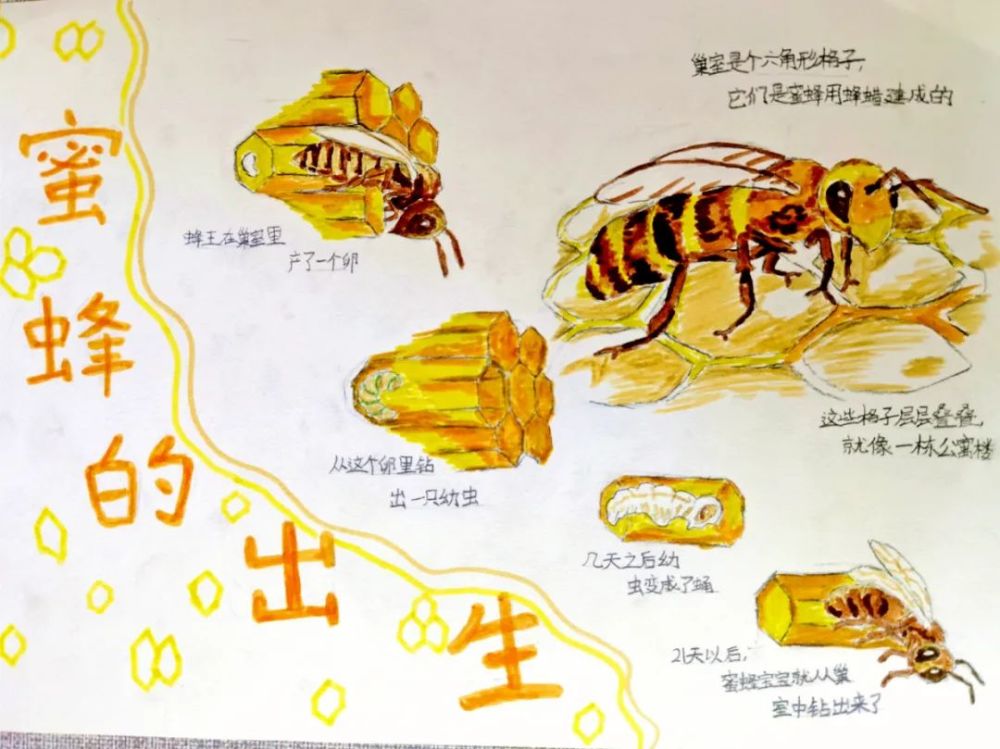 蜜蜂的出生
巢室是个六角形格子,
它们是蜜蜂用蜂蜡建成的
蜂王在巢室里
产了一个卵
这些格子层层叠叠,
就像一栋公寓楼
从这个卵里钻
出一只幼虫
几天之后幼
虫变成了蛹
21天以后,
蜜蜂宝宝就从巢
室中钻出来了